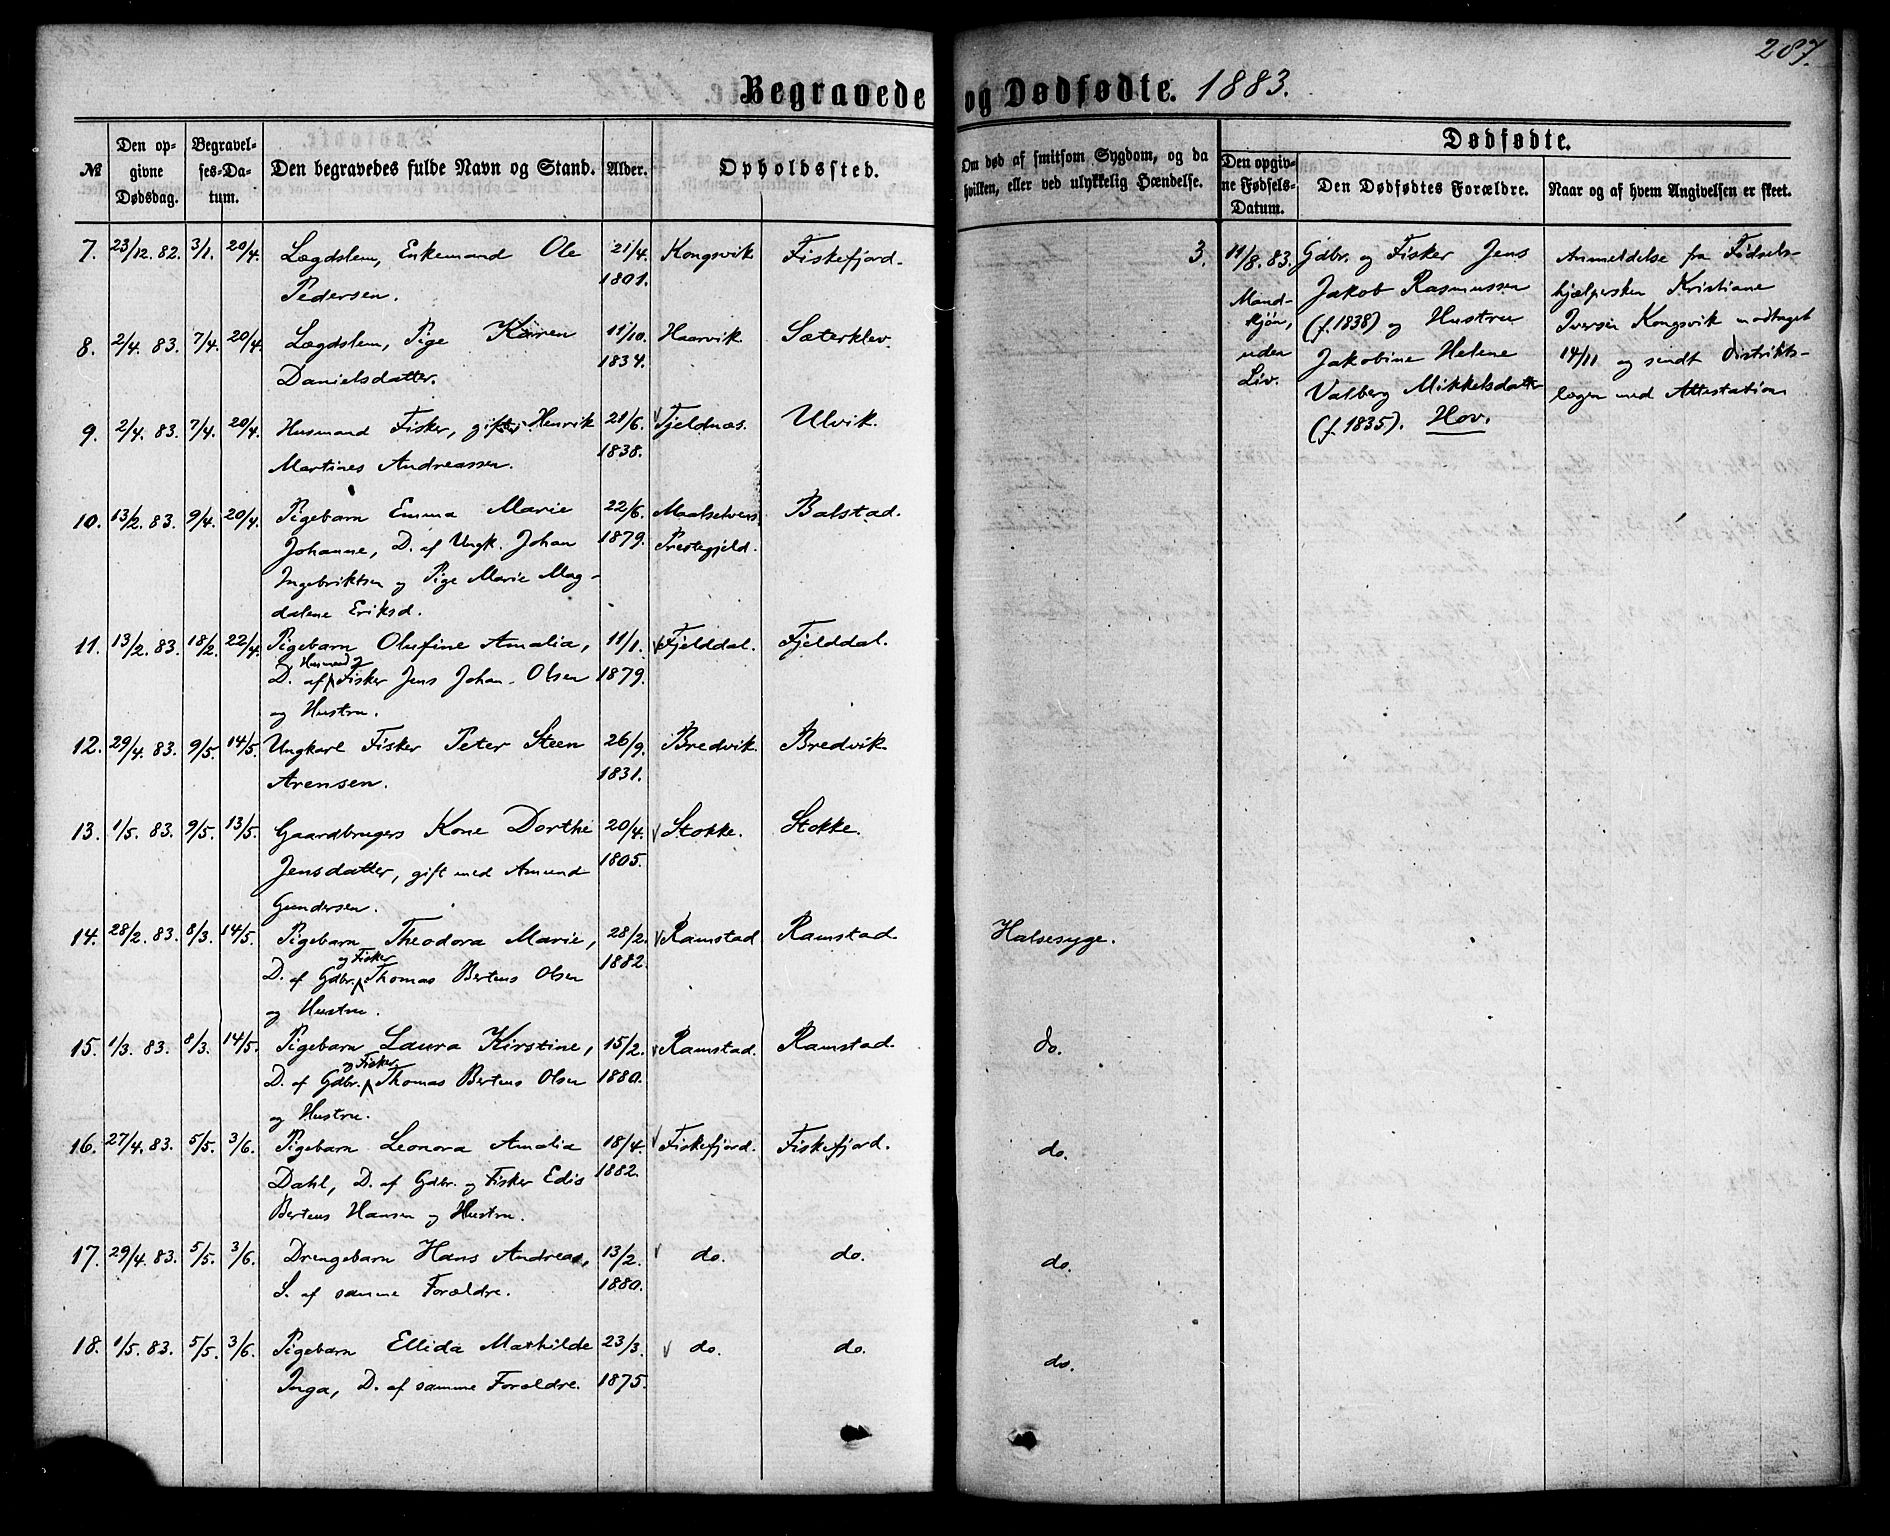 287.
Begravede og Dødfødte. 1883.
№
Den opgivne Dødsdag.
Begravelses-Datum.
Den begravedes fulde Navn og Stand.
Alder.
Opholdssted.
Om død af smitsom Sygdom, og da hvilken, eller ved ulykkelig Hændelse.
Dødfødte.
Den opgivne Fødsels-Datum.
Den Dødfødtes Forældre.
Naar og af hvem Angivelsen er skeet.
7. 23/12. 82. 3/1. 20/4. Lægdslem, Enkemand Ole 21/4. Kongsvik Fiskefjord.
Pedersen. 1801.
8. 2/4. 83. 7/4. 20/4. Lægdslem, Pige Karen 11/10. Haarvik. Sæterklev.
Danielsdatter. 1834.
9. 2/4. 83. 7/4. 20/4. Husmand Fisker, gifter Henrik 21/6. √ Tjeldnæs. Ulvik.
Martines Andreassen. 1838.
10. 13/2. 83. 9/4. 20/4. Pigebarn Emma Marie 22/6. Maalselvens Balstad.
Johanne, D. af Ungk. Johan 1879. Prestegjeld.
Ingebriktsen og Pige Marie Mag-
dalene Eriksd.
11. 13/2. 83. 18/2. 22/4. Pigebarn Olufine Amalia, 11/1. √ Fjelddal. Fjelddal.
D. af Husmand og Fisker Jens Johan Olsen 1879.
og Hustru.
12. 29/4. 83. 9/5. 14/5. Ungkarl Fisker Peter Steen 26/9. Bredvik. Bredvik.
Arensen. 1831.
13. 1/5. 83. 9/5. 13/5. Gaardbrugers Kone Dorthe 20/4. √ Stokke. Stokke.
Jensdatter, gift med Amund 1805.
Gundersen.
14. 28/2. 83. 8/3. 14/5. Pigebarn Theodora Marie, 28/2. √ Ramstad Ramstad. Halsesyge.
D. af Gdbr. og Fisker Thomas Bertens Olsen 1882.
og Hustru.
15. 1/3. 83. 8/3. 14/5. Pigebarn Laura Kirstine, 15/2. √ Ramstad. Ramstad. do.
D. af Gdbr. og Fisker Thomas Bertens Olsen 1880.
og Hustru.
16. 27/4. 83. 5/5. 3/6. Pigebarn Leonora Amalia 18/4. √ Fiskefjord. Fiskefjord. do.
Dahl, D. af Gdbr. og Fisker Edis 1882.
Bertens Hansen og Hustru.
17. 29/4. 83. 5/5. 3/6. Drengebarn Hans Andreas, 13/2. √ do. do. do.
S. af samme Forældre. 1880.
18. 1/5. 83. 5/5. 3/6. Pigebarn Ellida Mathilde 23/3. √ do. do. do.
Inga, D. af samme Forældre. 1875.
3. 11/8. 83. Gdbr. og Fisker Jens Anmeldelse fra Fødsels-
Mand- Jakob Rasmussen hjælpersken Kristiane
kjøn, (f. 1838) og Hustru Iversen Kongsvik modtaget
uden Jakobine Helene 14/11 og sendt Distrikts-
Liv. Valberg Mikkelsdatter lægen med Attestation
(f. 1835). Hov.